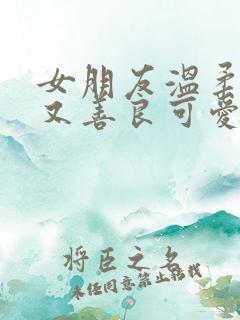 女朋友温柔
又善良可爱
将臣之名
未经同意禁止转载